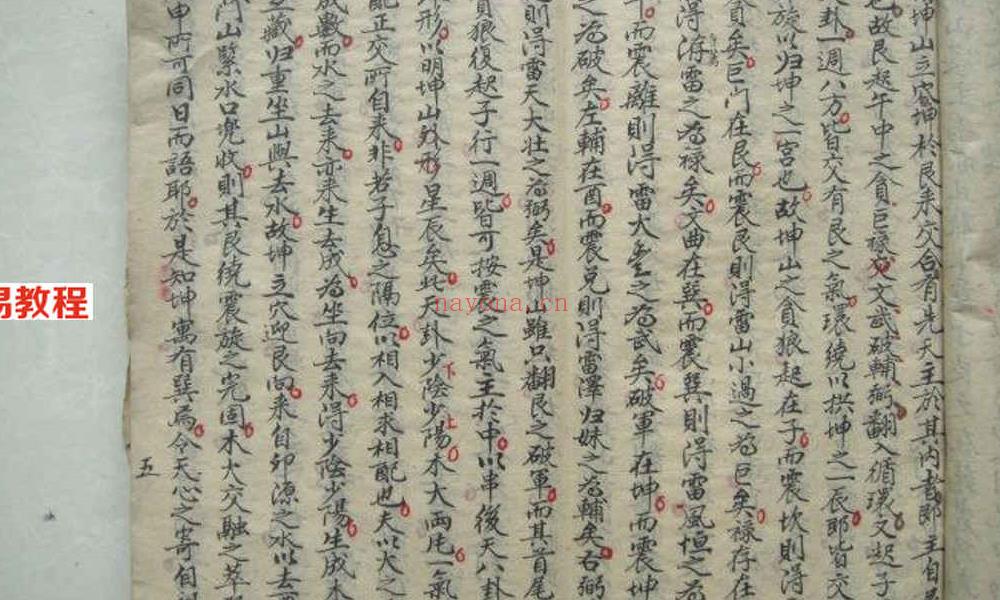 坤山立穴坤於艮来交合有先天主於其内者即主自艮
也故艮起午中之貪巨祿文武破輔弼翻入循環又起子
卦一週八方皆交有艮之氣環繞以拱坤之一辰即皆交
旋以归坤之一宮也故坤山之貪狼起在子而震坎則得
貪矣巨门在艮而震艮則得雷山小過之為巨矣祿存在
得洊雷之為祿矣文曲在巽而震巽則得雷風恒之
午而震離則得雷火豐之為武矣破軍在坤而震坤
之為破矣左輔在酉而震兑則得雷澤归妹之為輔矣右弼
則得雷天大壮之為弼矣是坤山雖只翻艮之破軍而其首尾
貪狼復起子行一週皆可按震之氣主於中以串後天八卦
外形以明坤山外形星辰矣此天卦少陰少陽木火兩局一氣
下
上
配正交所自来非若子息之隔位以相入相求相配也夫以火之
成數而水之去来亦来生去成為坐向去来得少陰少陽生成木
立藏归重坐山與去水故坤立穴迎艮向来自卯源之水以去
河山緊水口兜收則其艮繞震旋之完固木火交融之萃
申所可同日而語耶於是知坤寓有巽焉今天心之寄自
五
易教程
nayona.cn